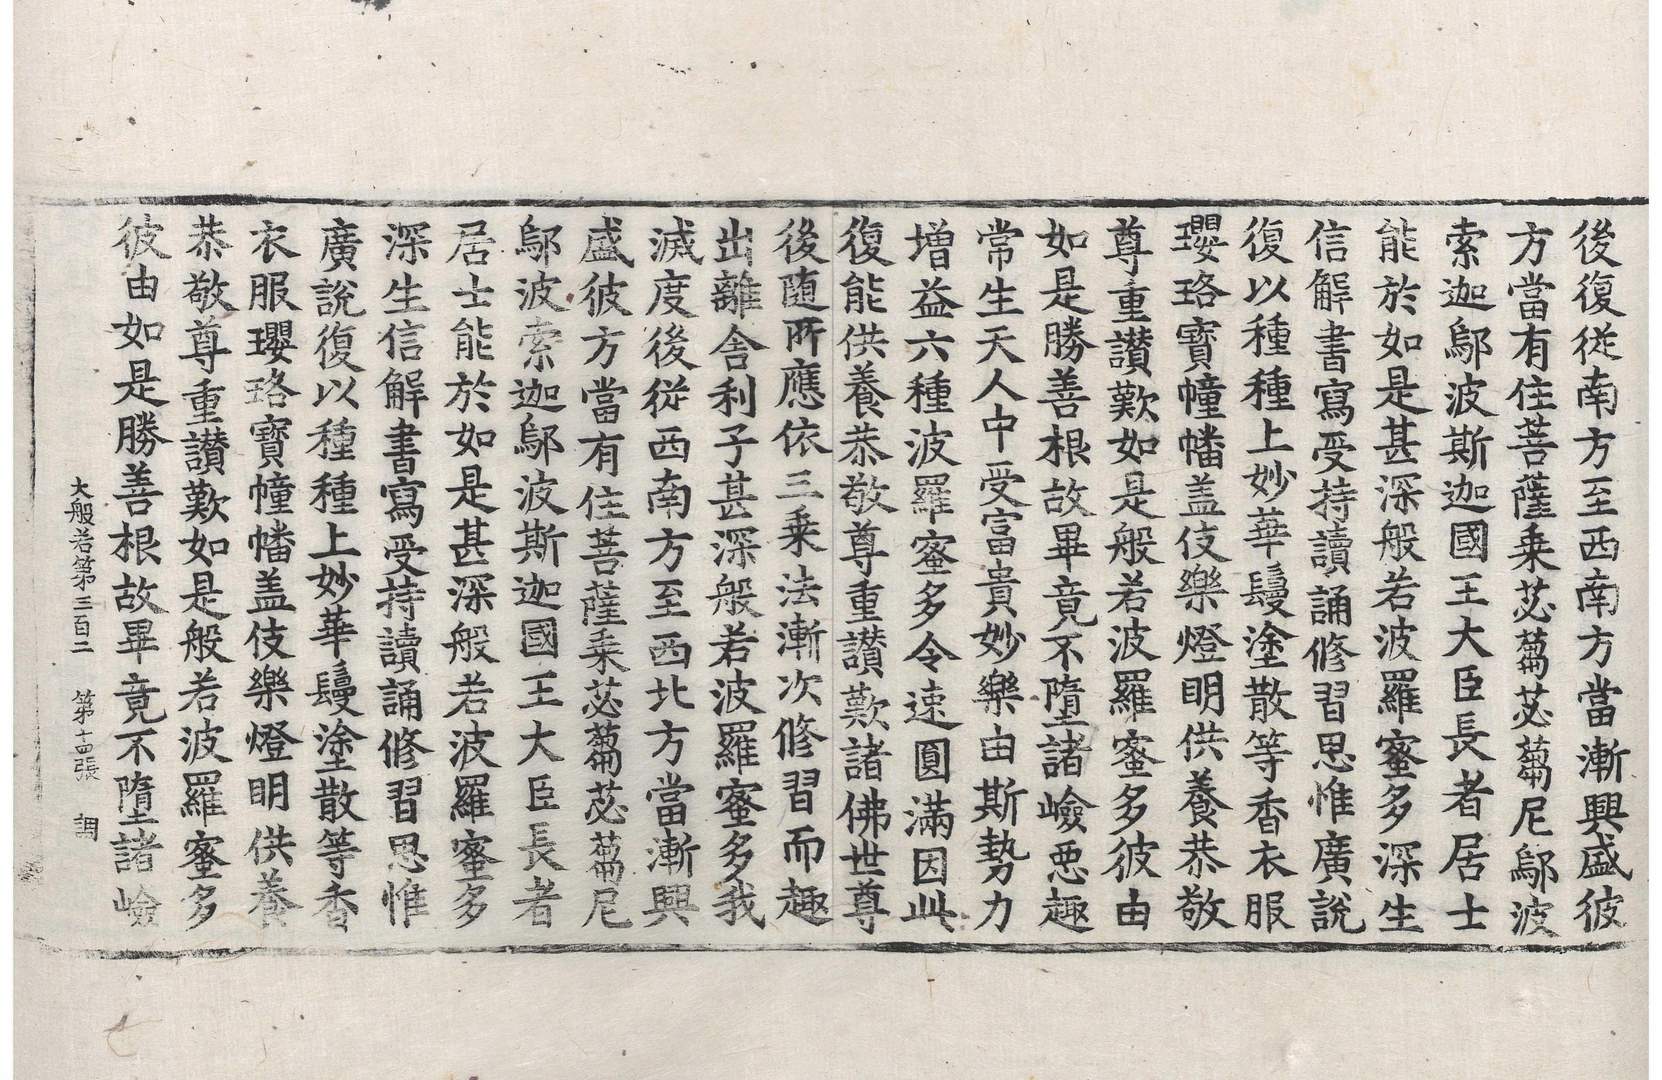 後復從南方至西南方當漸興盛彼
方當有住菩薩乘苾蒭苾蒭尼鄔波
索迦鄔波斯迦國王大臣長者居士
能於如是甚深般若波羅蜜多深生
信解書寫受持讀誦修習思惟廣說
復以種種上妙華鬘塗散等香衣服
瓔珞寶幢幡盖伎樂燈明供養恭敬
尊重讃歎如是般若波羅蜜多彼由
如是勝善根故畢竟不墮諸嶮惡趣
常生天人中受富貴妙樂由斯勢力
增益六種波羅蜜多令速圓滿因此
復能供養恭敬尊重讃歎諸佛世尊
後隨所應依三乘法漸次修習而趣
出離舍利子甚深般若波羅蜜多我
滅度後從西南方至西北方當漸興
盛彼方當有住菩薩乘苾蒭苾蒭尼
鄔波索迦鄔波斯迦國王大臣長者
居士能於如是甚深般若波羅蜜多
深生信解書寫受持讀誦修習思惟
廣說復以種種上妙華鬘塗散等香
衣服瓔珞寶幢幡盖伎樂燈明供養
恭敬尊重讃歎如是般若波羅蜜多
彼由如是勝善根故畢竟不墮諸嶮
大般若第三百二 第十四張 調